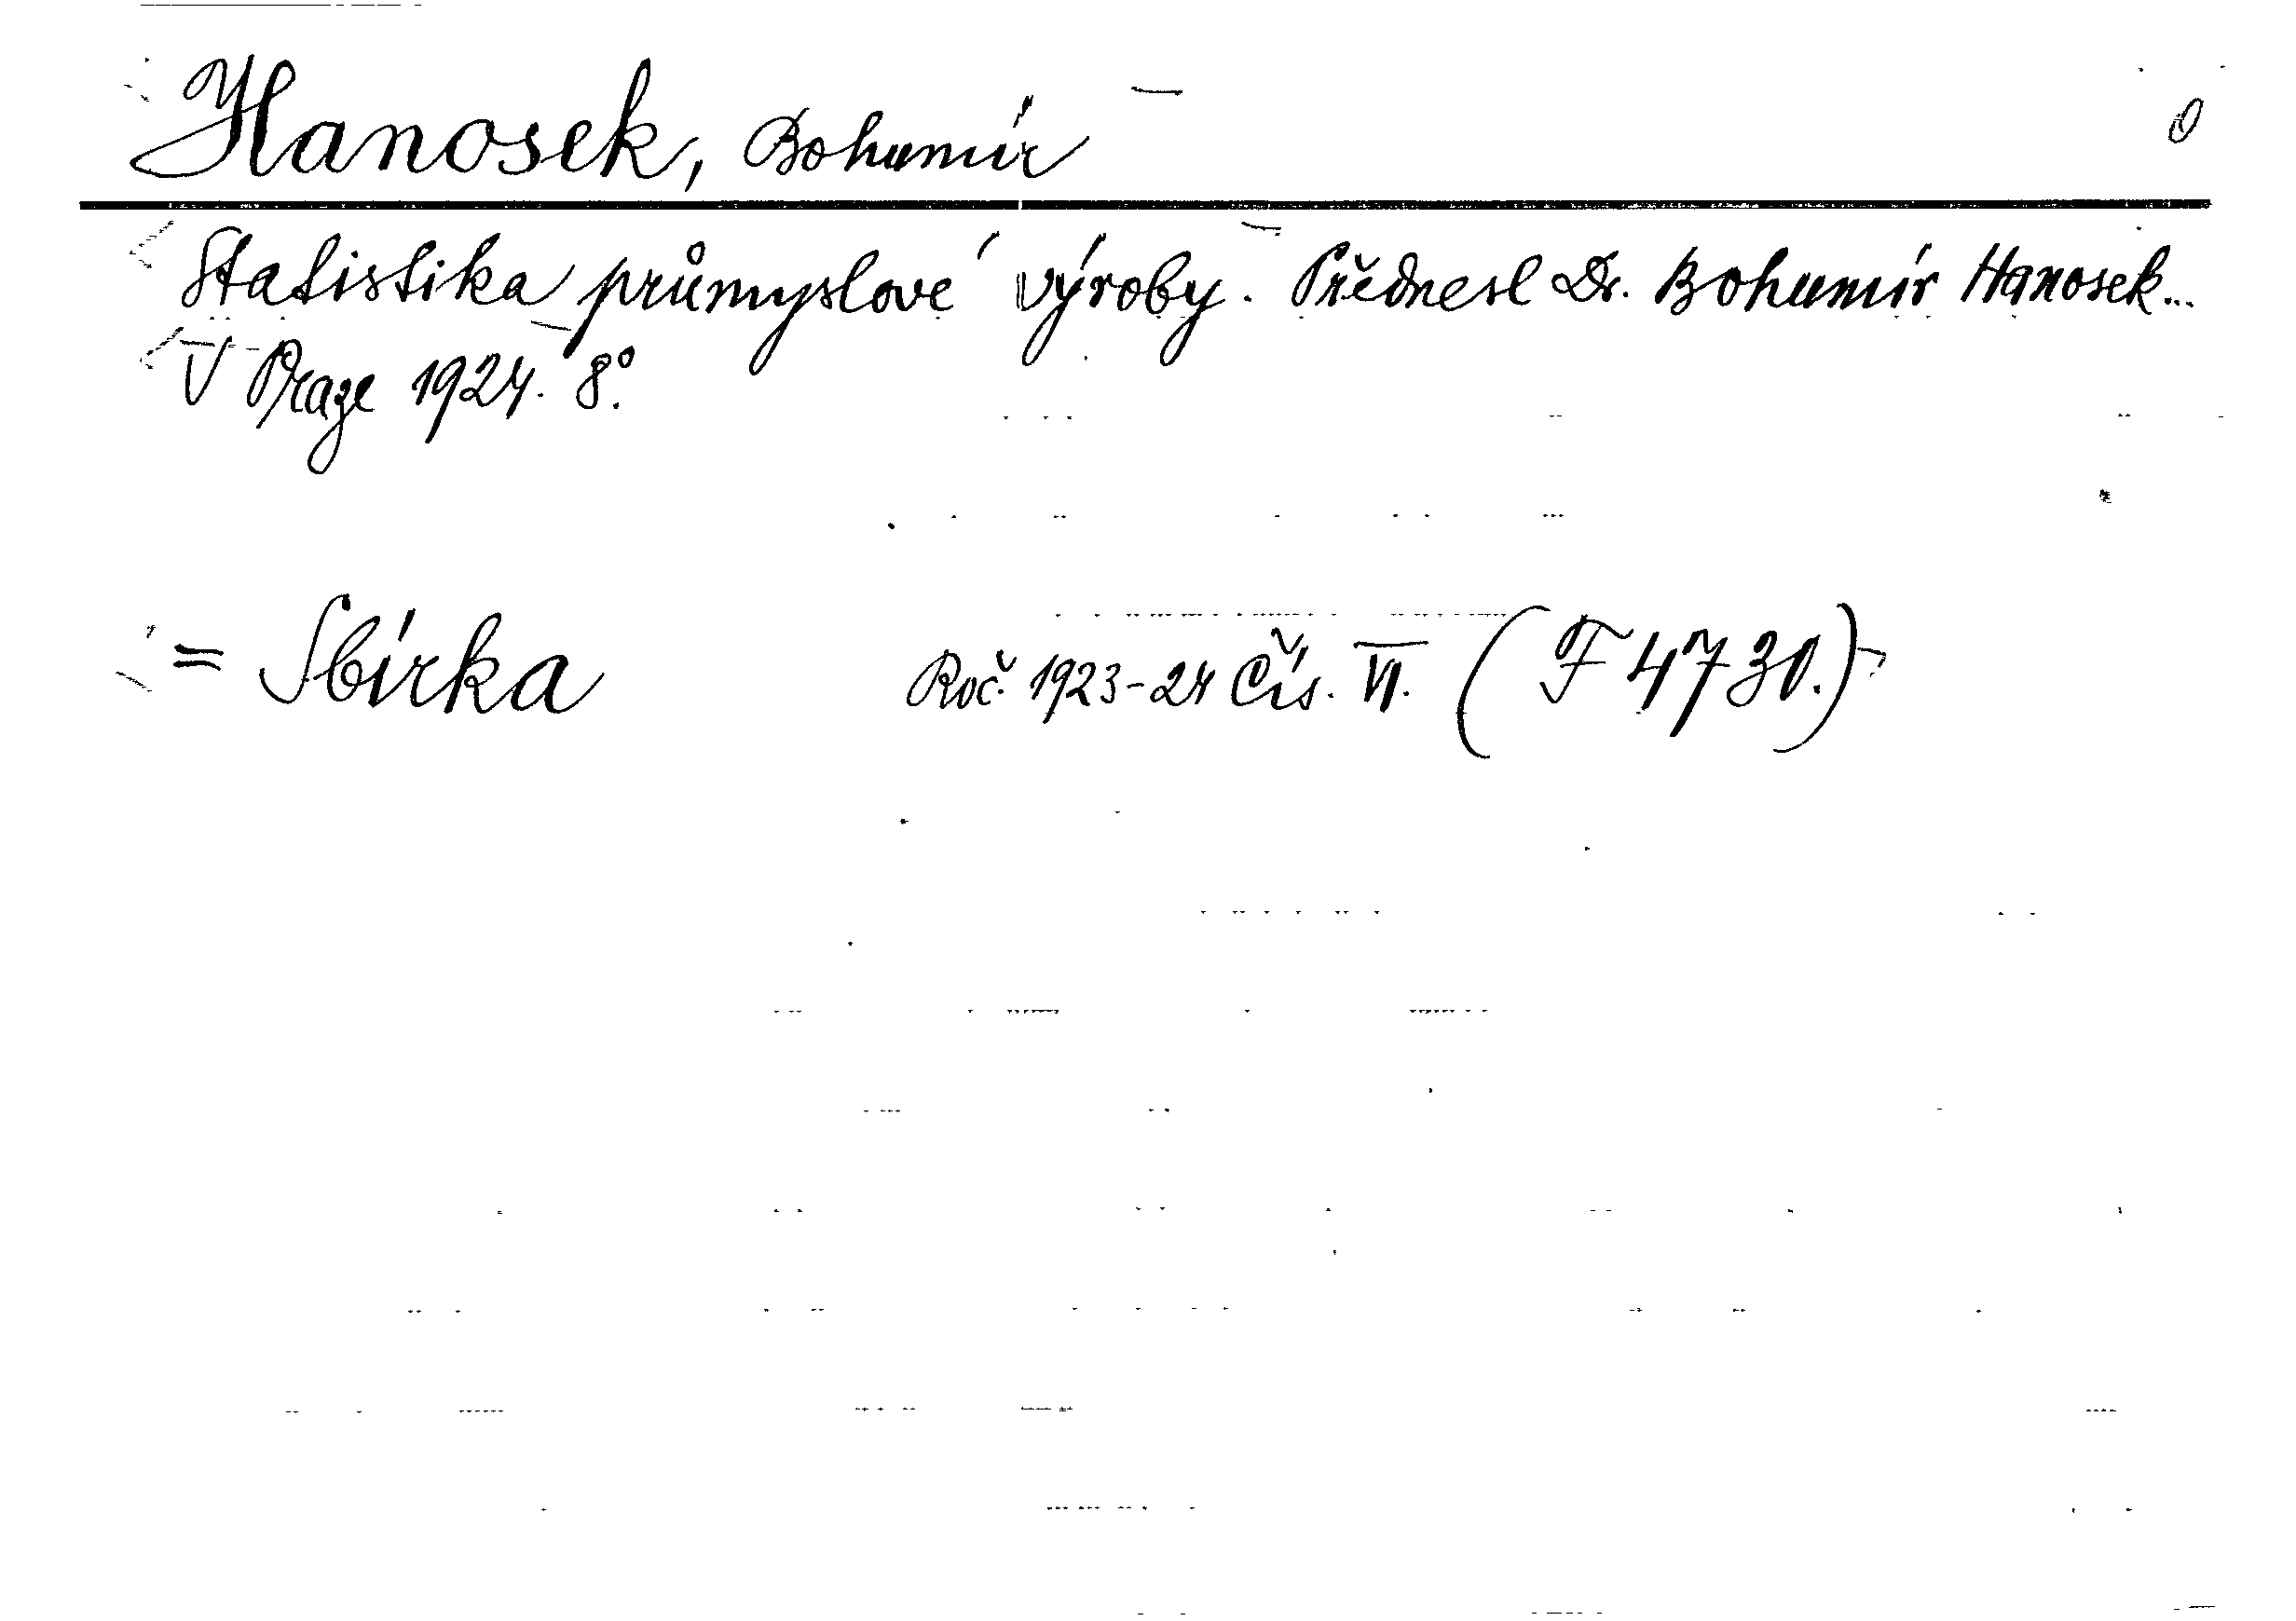 Hanosek, Bohumír 0
Statistika průmyslové výroby. Přednesl Dr. Bohumír Hanosek...
V Praze 1924. 8°.
= Sbírka Roč. 1923-24 Čís. VI. (F 4730.)